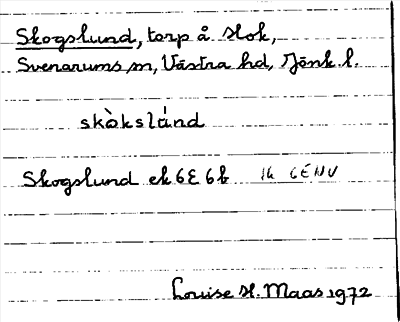 Skogslund, torp å Hok,
Svenarums sn, Västra hd, Jönk. l.
skòkslánd
Skogslund ek 6E 6b
Louise H. Maas 1972